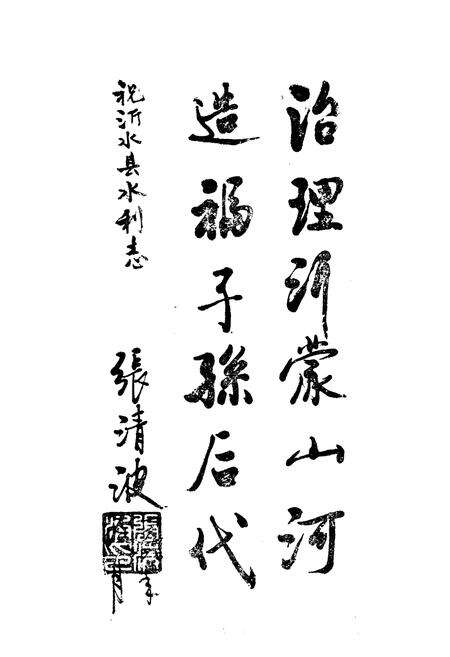 治理沂蒙山河
造福子孫后代
祝沂水县水利志
張清波